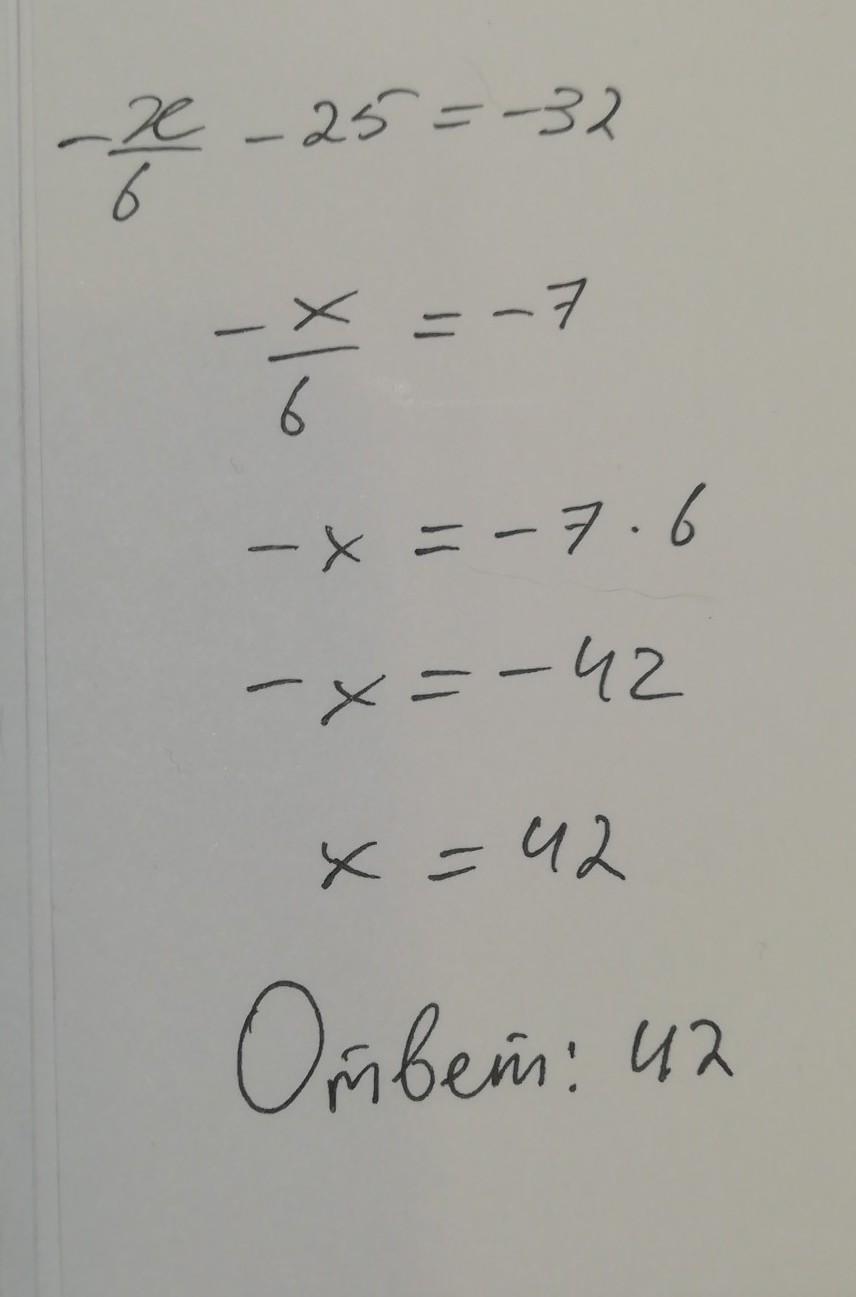 -x/6 - 25 = -32
-x/6 = -7
-x = -7 · 6
-x = -42
x = 42
Ответ: 42